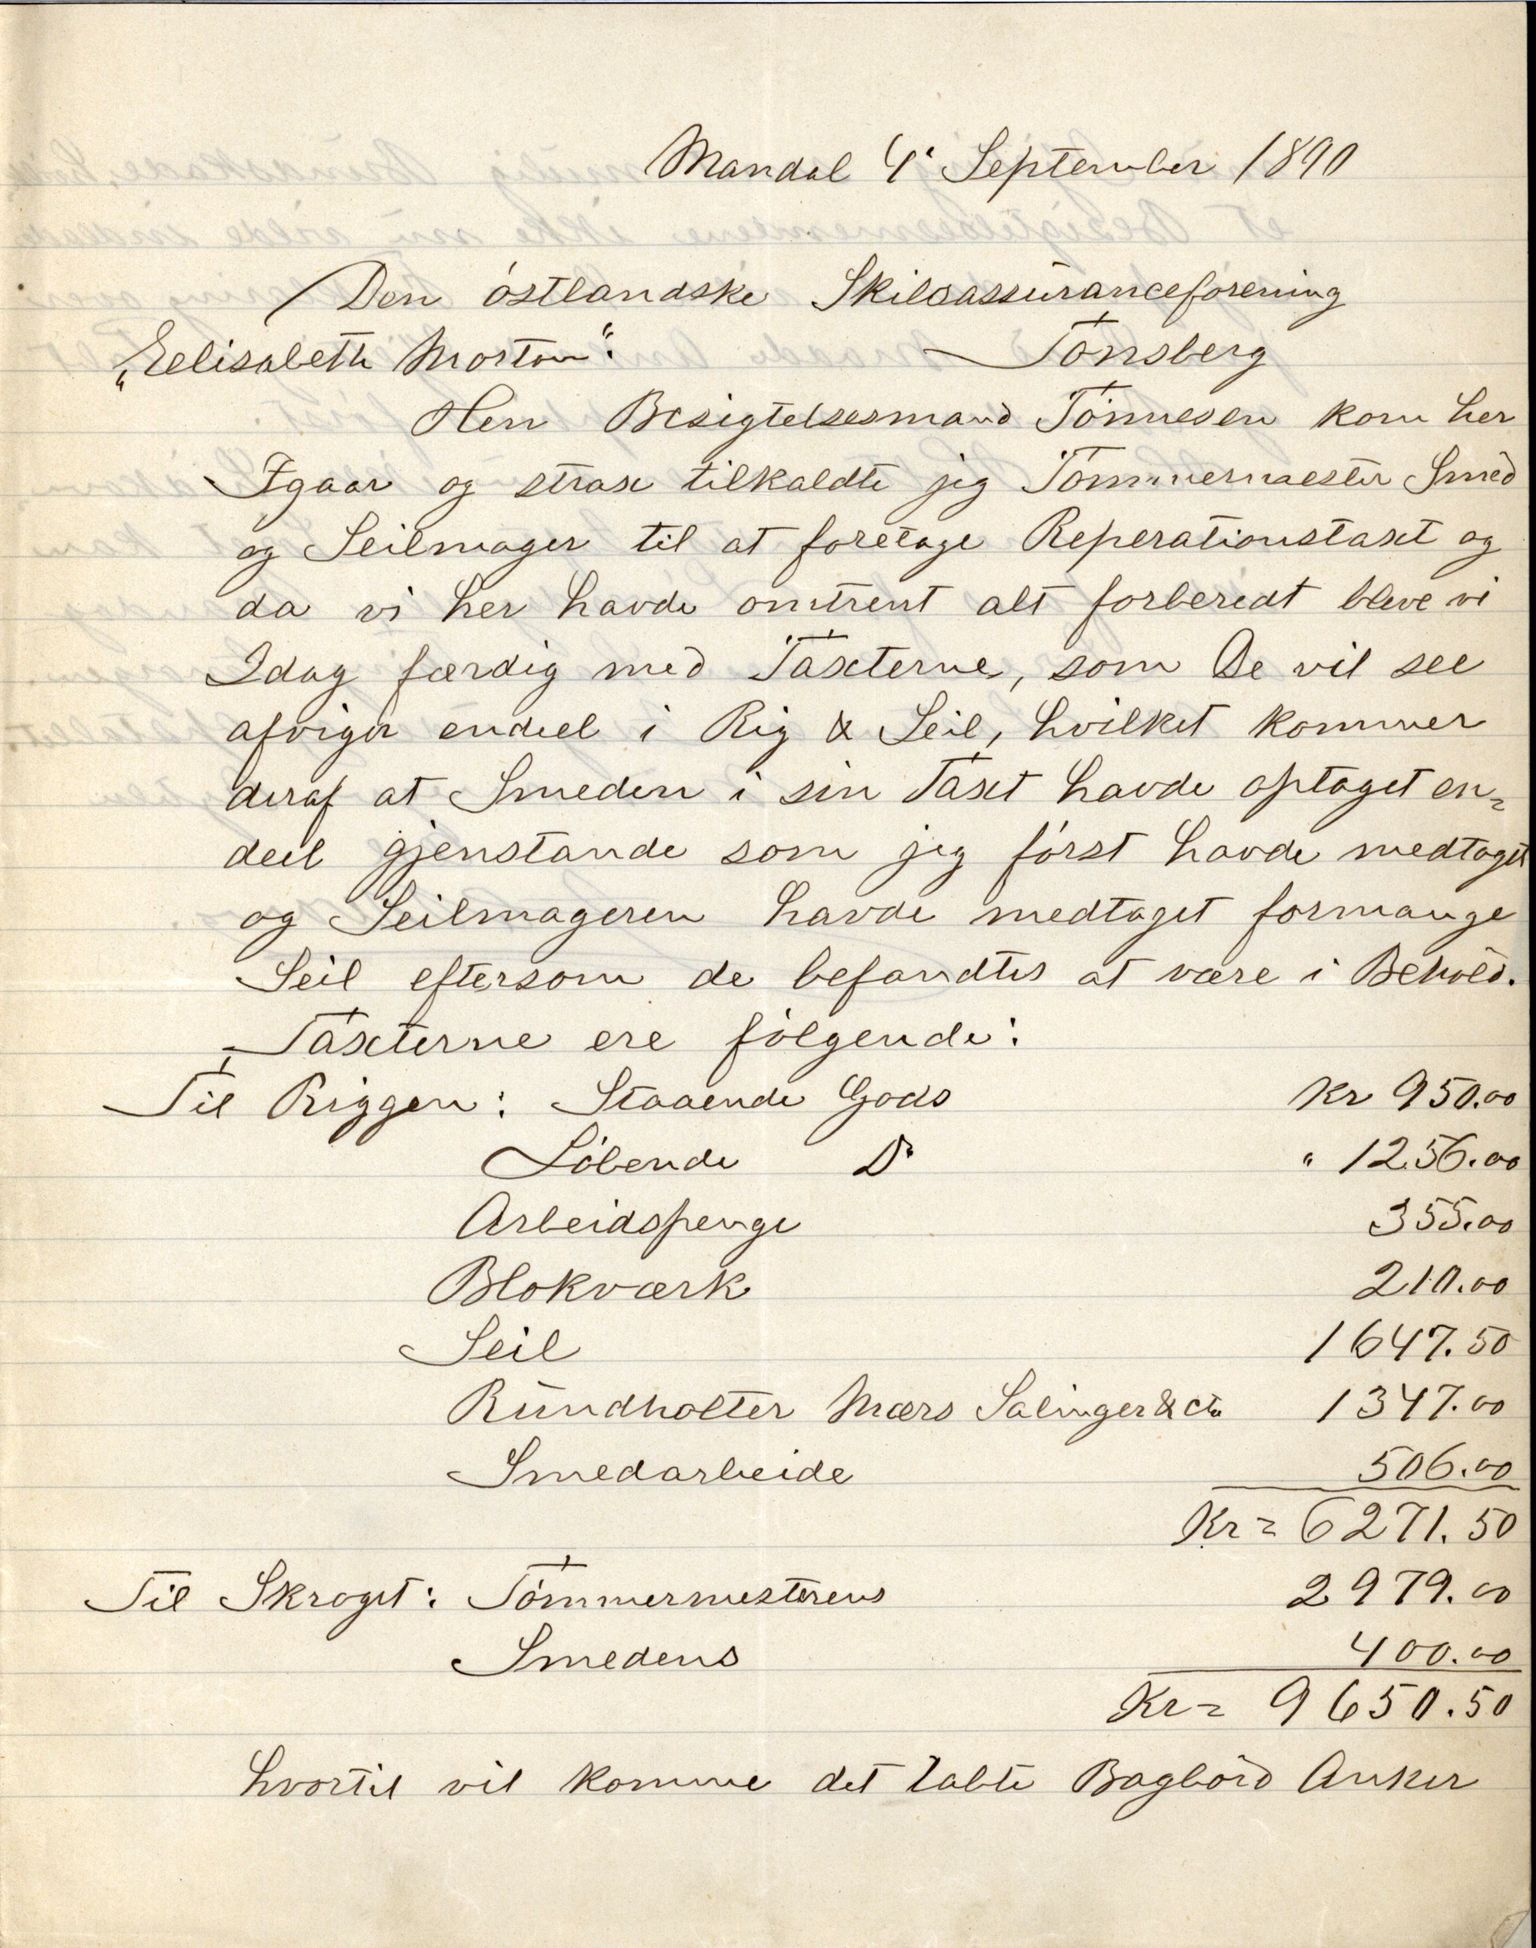 Mandal 4' September 1890
Den östlandske Skibsassuranceforening
Tönsberg
„Eelisabeth Morton".
Herr Besigtelsesmand Tönnesen kom her
Igaar og strax tilkaldte jeg Tömmermester Smed
og Seilmager til at foretage Reperationstaxt og
da vi her havde omtrent alt forberedt bleve vi
Idag færdig med Taxterne, som De vil see
afviger endeel i Rig & Seil, hvilket kommer
deraf at Smeden i sin Taxt havde optaget en=
deel gjenstande som jeg först havde medtaget
og Seilmageren havde medtaget formange
Seil eftersom de befandtes at være i Behold.
Taxterne ere fölgende:
Til Riggen: Staaende Gods Kr 950.00
Löbende Do " 1256.00
Arbeidspenge 355.00
Blokværk 210.00
Seil 1647.50
Rundholter Mærs Salinger & cta 1347.00
Smedarbeide 506.00
Kr = 6271.50
Til Skroget: Tömmermesterens 2979.00
Smedens 400.00
Kr = 9650.50
hvortil vil komme det tabte Bagbörd Anker